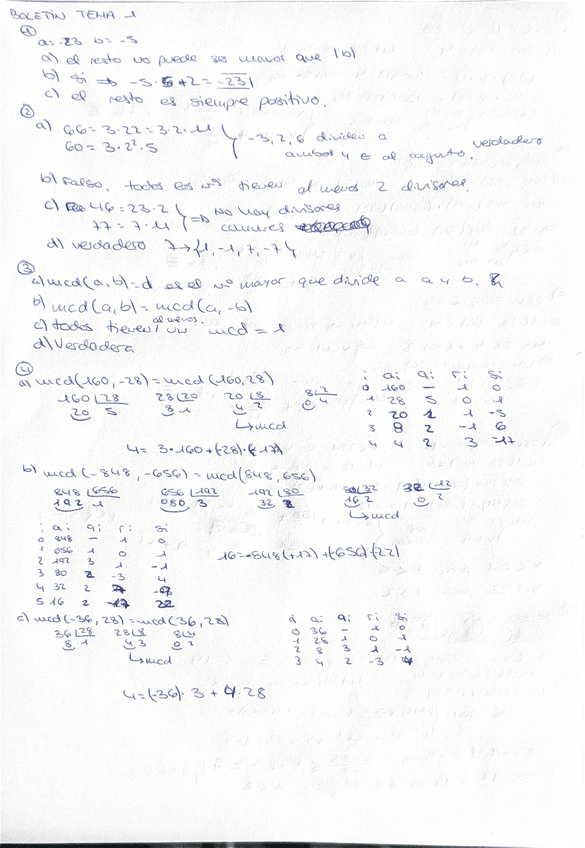 BOLETÍN TEMA 1
①
a=-23 b=-5
a) el resto no puede ser mayor que |b|
b) Si ⇒ -5·5+2=-23
c) el resto es siempre positivo.
②
a) 66=3·22=3·2·11
60=3·2²·5
-3,2,6 dividen a ambos y ∈ al conjunto. verdadero
b) Falso, todos los nºs tienen al menos 2 divisores.
c) 46=23·2
77=7·11
⇒ No hay divisores comunes
d) verdadero 7→{1,-1,7,-7}
③
a) mcd(a,b)=d es el nº mayor que divide a a y b.
b) mcd(a,b)=mcd(a,-b)
c) todos tienen al menos un mcd=1
d) Verdadera
④
a) mcd(160,-28)=mcd(160,28)
160 28 28 20 20 8 8 2
20 5 8 1 4 2 0 4
↳mcd
i ai qi ri si
0 160 - 1 0
1 28 5 0 1
2 20 1 1 -5
3 8 2 -1 6
4 4 2 3 -17
4=3·160+(28)·(-17)
b) mcd(-848,-656)=mcd(848,656)
848 656 656 192 192 80 80 32
192 1 080 3 32 2 16 2 0 2
↳mcd
i ai qi ri si
0 848 - 1 0
1 656 1 0 1
2 192 3 1 -1
3 80 2 -3 4
4 32 2 7 -9
5 16 2 -17 22
16=-848(+17)+(-656)(-22)
c) mcd(-36,28)=mcd(36,28)
36 28 28 8 8 4
8 1 4 3 0 2
↳mcd
i ai qi ri si
0 36 - 1 0
1 28 1 0 1
2 8 3 1 -1
3 4 2 -3 4
4=(-36)·3+4·28